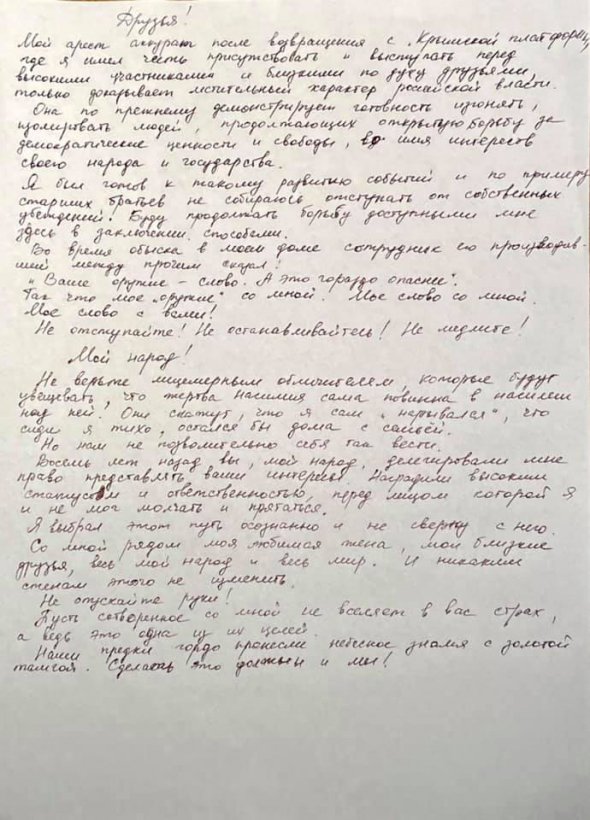 Друзья!
Мой арест аккурат после возвращения с „Крымской платформы,
где я имел честь присутствовать и выступать перед
высокими участниками и близкими по духу друзьями,
только доказывает мстительный характер российской власти.
Она по прежнему демонстрирует готовность изгонять,
изолировать людей, продолжающих открытую борьбу за
демократические ценности и свободы, во имя интересов
своего народа и государства.
Я был готов к такому развитию событий и по примеру
старших братьев не собираюсь отступать от собственных
убеждений! Буду продолжать борьбу доступными мне
здесь в заключении способами.
Во время обыска в моем доме сотрудник его производив-
шей между прочим сказал:
„Ваше оружие - слово. А это гораздо опасней".
Так что мое „оружие" со мной! Мое слово со мной.
Мое слово с вами!
Не отступайте! Не останавливайтесь! Не медлите!
Мой народ!
Не верьте лицемерным обличителям, которые будут
увещевать, что жертва насилия сама повинна в насилии
над ней! Они скажут, что я сам „нарывался", что
сиди я тихо, остался бы дома с семьёй.
Но нам не позволительно себя так вести.
Восемь лет назад вы, мой народ, делегировали мне
право представлять ваши интересы. Наградили высоким
статусом и ответственностью, перед лицом которой я
и не мог молчать и прятаться.
Я выбрал этот путь осознанно и не сверну с него.
Со мной рядом моя любимая жена, мои близкие
друзья, весь мой народ и весь мир. И никаким
стенам этого не изменить.
Не опускайте руки!
Пусть сотворенное со мной не вселяет в вас страх,
а ведь это одна из их целей.
Наши предки гордо пронесли небесное знамя с золотой
тамгой. Сделать это должны и мы!